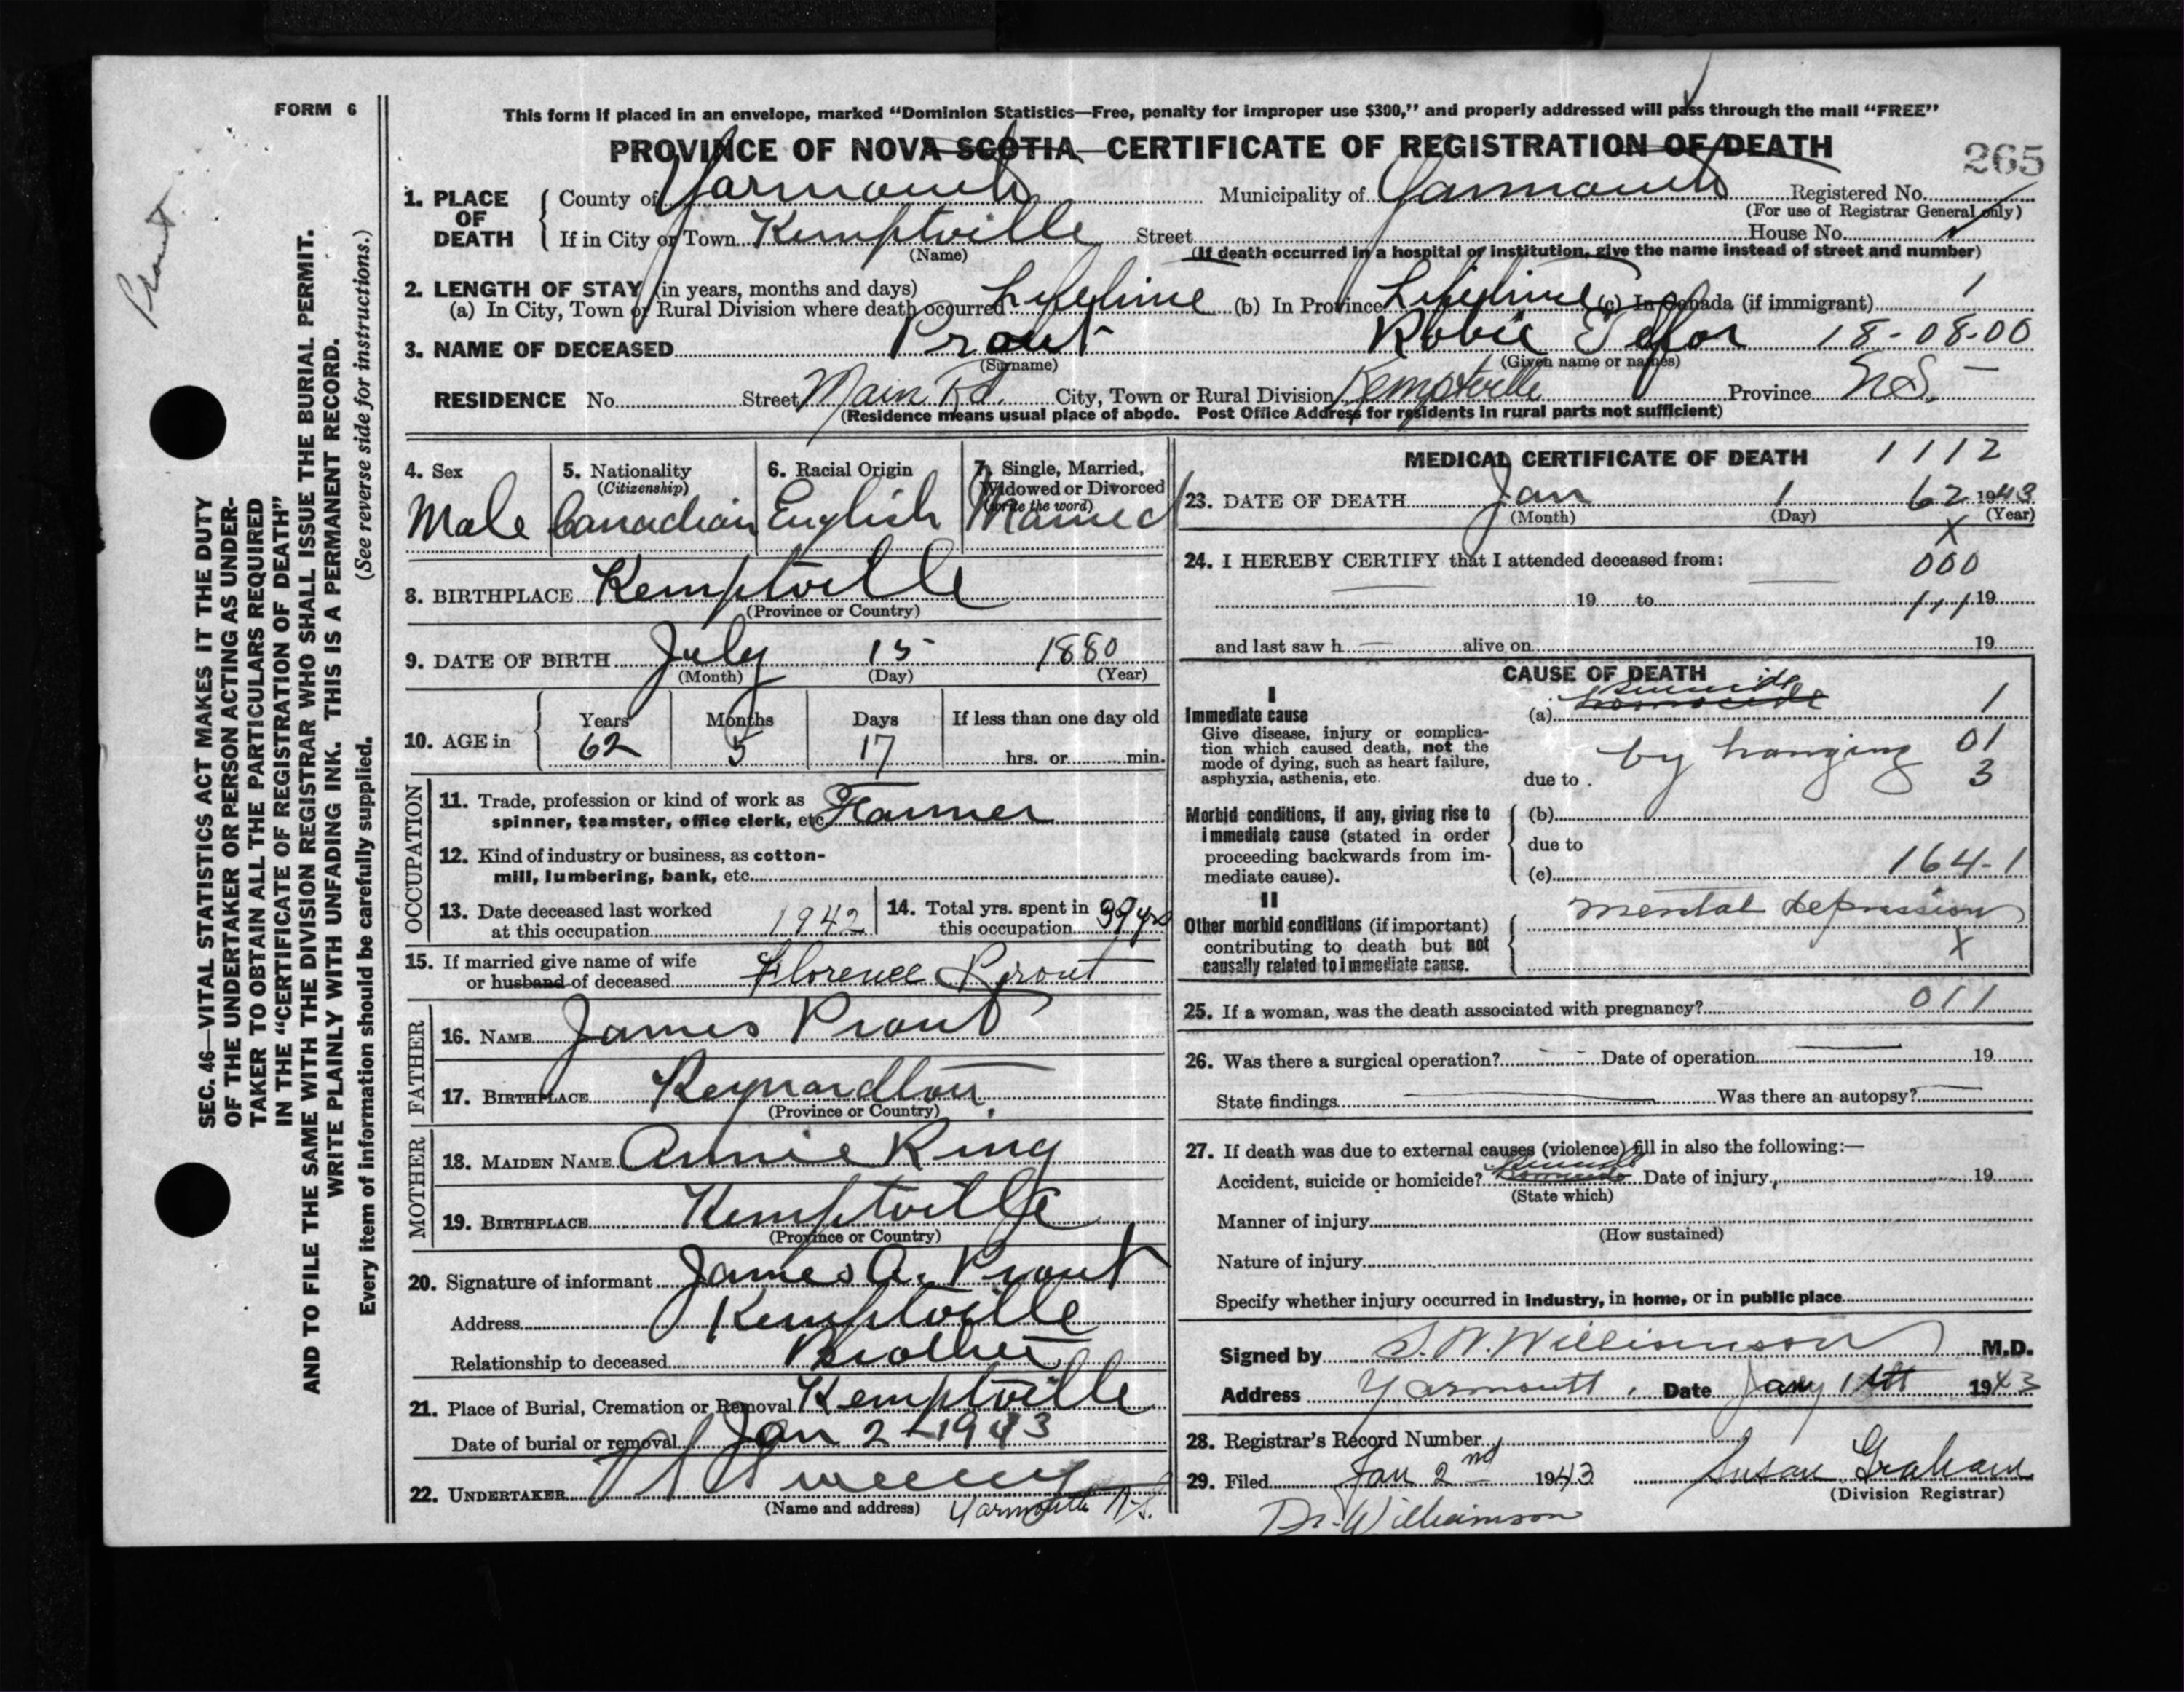 FORM 6
Prout
SEC. 46—VITAL STATISTICS ACT MAKES IT THE DUTY
OF THE UNDERTAKER OR PERSON ACTING AS UNDER-
TAKER TO OBTAIN ALL THE PARTICULARS REQUIRED
IN THE "CERTIFICATE OF REGISTRATION OF DEATH"
AND TO FILE THE SAME WITH THE DIVISION REGISTRAR WHO SHALL ISSUE THE BURIAL PERMIT.
WRITE PLAINLY WITH UNFADING INK. THIS IS A PERMANENT RECORD.
Every item of information should be carefully supplied. (See reverse side for instructions.)
This form if placed in an envelope, marked "Dominion Statistics—Free, penalty for improper use $300," and properly addressed will pass through the mail "FREE"
PROVINCE OF NOVA SCOTIA CERTIFICATE OF REGISTRATION OF DEATH
265
1. PLACE OF DEATH County of Yarmouth Municipality of Yarmouth Registered No.
(For use of Registrar General only)
If in City or Town Kemptville Street House No.
(Name) (If death occurred in a hospital or institution, give the name instead of street and number)
2. LENGTH OF STAY (in years, months and days)
(a) In City, Town or Rural Division where death occurred Lifetime (b) In Province Lifetime (c) In Canada (if immigrant) 1
3. NAME OF DECEASED Prout Robie 18-08-00
(Surname) (Given name or names)
RESIDENCE No. Street Main Rd. City, Town or Rural Division Kemptville Province N.S.
(Residence means usual place of abode. Post Office Address for residents in rural parts not sufficient)
4. Sex Male
5. Nationality (Citizenship) Canadian
6. Racial Origin English
7. Single, Married, Widowed or Divorced (write the word) Married
8. BIRTHPLACE Kemptville
(Province or Country)
9. DATE OF BIRTH July 15 1880
(Month) (Day) (Year)
10. AGE in Years 62 Months 5 Days 17 If less than one day old hrs. or min.
OCCUPATION
11. Trade, profession or kind of work as
spinner, teamster, office clerk, etc. Farmer
12. Kind of industry or business, as cotton-
mill, lumbering, bank, etc.
13. Date deceased last worked at this occupation 1942
14. Total yrs. spent in this occupation 39 yrs
15. If married give name of wife
or husband of deceased Florence Prout
FATHER
16. NAME James Prout
17. BIRTHPLACE Reynardton
(Province or Country)
MOTHER
18. MAIDEN NAME Annie Ring
19. BIRTHPLACE Kemptville
(Province or Country)
20. Signature of informant James A. Prout
Address Kemptville
Relationship to deceased Brother
21. Place of Burial, Cremation or Removal Kemptville
Date of burial or removal Jan 2 - 1943
22. UNDERTAKER Sweeny
(Name and address) Yarmouth N.S.
MEDICAL CERTIFICATE OF DEATH 1112
23. DATE OF DEATH Jan 1 62 1943
(Month) (Day) (Year)
X
24. I HEREBY CERTIFY that I attended deceased from: 000
19 to 111 19
and last saw h alive on 19
CAUSE OF DEATH
I
Immediate cause
Give disease, injury or complica-
tion which caused death, not the
mode of dying, such as heart failure,
asphyxia, asthenia, etc.
(a) Suicide homocide 1
by hanging 01
due to 3
Morbid conditions, if any, giving rise to
immediate cause (stated in order
proceeding backwards from im-
mediate cause).
(b)
due to
(c) 164-1
II
Other morbid conditions (if important)
contributing to death but not
causally related to immediate cause.
mental depression
X
25. If a woman, was the death associated with pregnancy? 011
26. Was there a surgical operation? Date of operation 19
State findings Was there an autopsy?
27. If death was due to external causes (violence) fill in also the following:—
Accident, suicide or homicide? Suicide Date of injury 19
(State which)
Manner of injury
(How sustained)
Nature of injury
Specify whether injury occurred in industry, in home, or in public place
Signed by S. W. Williamson M.D.
Address Yarmouth Date Jany 1st 1943
28. Registrar's Record Number
29. Filed Jan 2nd 1943 Susan Graham
(Division Registrar)
Dr. Williamson